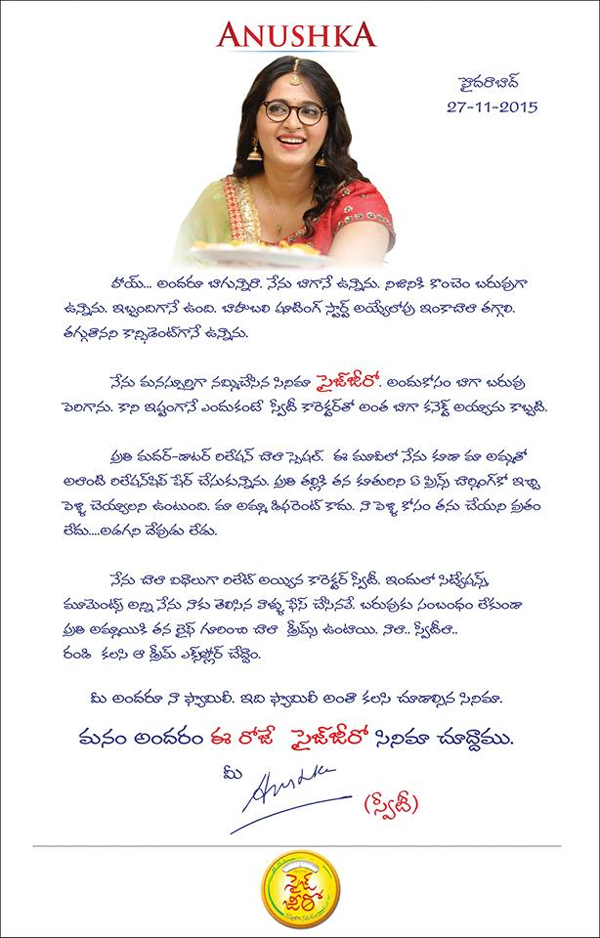 ANUSHKA
హైదరాబాద్
27-11-2015
హాయ్... అందరూ బాగున్నారా. నేను బాగానే ఉన్నాను. నిజానికి కొంచెం బరువుగా
ఉన్నాను. ఇబ్బందిగానే ఉంది. బాహుబలి షూటింగ్ స్టార్ట్ అయ్యేలోపు ఇంకాచాలా తగ్గాలి.
తగ్గుతానని కాన్ఫిడెంట్‌గానే ఉన్నాను.
నేను మనస్ఫూర్తిగా నమ్మిచేసిన సినిమా సైజ్‌జీరో. అందుకోసం బాగా బరువు
పెరిగాను. కాని ఇష్టంగానే ఎందుకంటే స్వీటీ కారెక్టర్‌తో అంత బాగా కనెక్ట్ అయ్యాను కాబట్టి.
ప్రతి మదర్-డాటర్ రిలేషన్ చాలా స్పెషల్. ఈ మూవీలో నేను కూడా మా అమ్మతో
అలాంటి రిలేషన్‌షిప్ షేర్ చేసుకున్నాను. ప్రతి తల్లికి తన కూతురిని ఏ ప్రిన్స్ చార్మింగ్‌కో ఇచ్చి
పెళ్ళి చెయ్యాలని ఉంటుంది. మా అమ్మా డిఫరెంట్ కాదు. నా పెళ్ళి కోసం తను చేయని వ్రతం
లేదు....అడగని దేవుడు లేడు.
నేను చాలా విధాలుగా రిలేట్ అయ్యిన కారెక్టర్ స్వీటీ. ఇందులో సిట్యుేషన్స్,
మూమెంట్స్ అన్ని నేను నాకు తెలిసిన వాళ్ళు ఫేస్ చేసినవే. బరువుకు సంబంధం లేకుండా
ప్రతి అమ్మాయికి తన లైఫ్ గూరించి చాలా డ్రీమ్స్ ఉంటాయి. నాలా.. స్వీటీలా..
రండి కలసి ఆ డ్రీమ్ ఎక్స్‌ప్లోర్ చేద్దెం.
మీ అందరూ నా ఫ్యామిలీ. ఇది ఫ్యామిలీ అంతా కలసి చూడాల్సిన సినిమా.
మనం అందరం ఈ రోజే సైజ్‌జీరో సినిమా చూద్దాము.
మీ
Anushka
(స్వీటీ)
సైజ్
జీరో